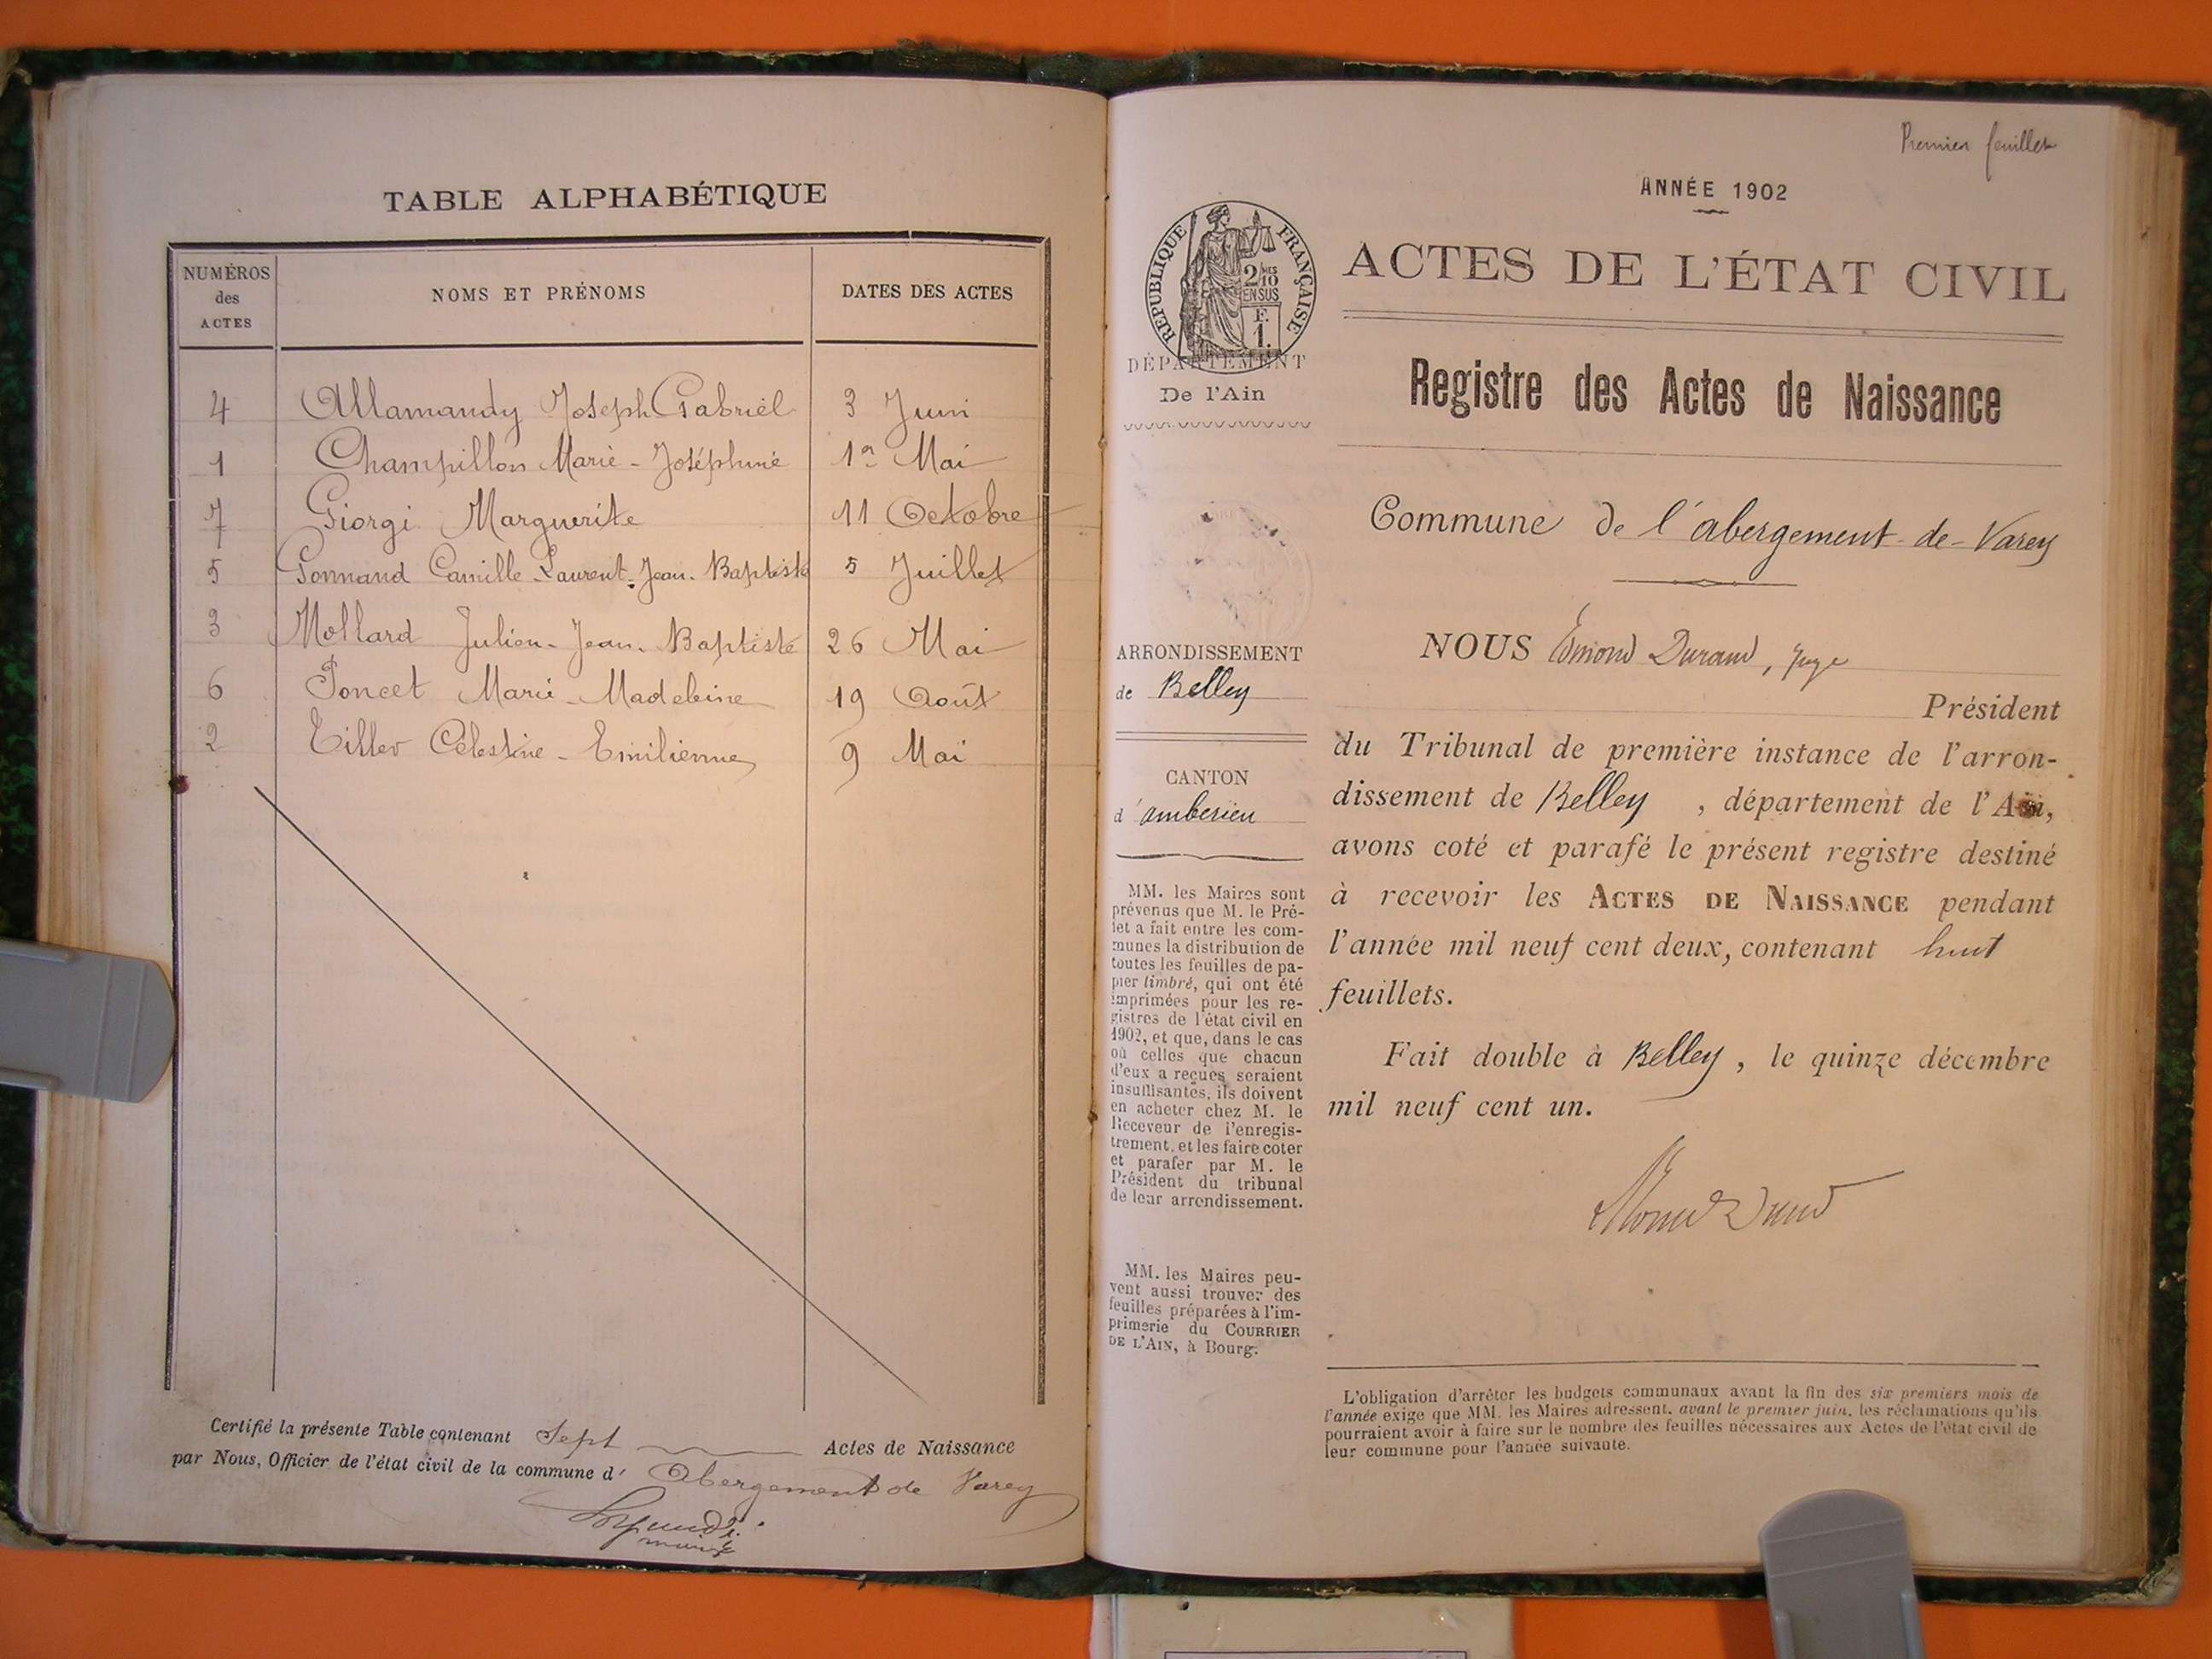 TABLE ALPHABÉTIQUE
NUMÉROS des ACTES NOMS ET PRÉNOMS DATES DES ACTES
4 Allamandy Joseph Gabriel 3 Juin
1 Champillon Marie-Joséphine 1er Mai
7 Giorgi Marguerite 11 Octobre
5 Gonnand Camille-Laurent-Jean-Baptiste 5 Juillet
3 Mollard Julien-Jean-Baptiste 26 Mai
6 Poncet Marie-Madeleine 19 Août
2 Tiller Célestine-Emilienne 9 Mai
Certifié la présente Table contenant Sept Actes de Naissance
par Nous, Officier de l'état civil de la commune d' Abergement de Varey
maire
Premier feuillet
ANNÉE 1902
RÉPUBLIQUE FRANÇAISE
2/10 MES
EN SUS
F.
1.
DÉPARTEMENT
De l'Ain
ACTES DE L'ÉTAT CIVIL
Registre des Actes de Naissance
Commune de l'abergement-de-Varey
ARRONDISSEMENT
de Belley
CANTON
d'amberieu
MM. les Maires sont
prévenus que M. le Pré-
fet a fait entre les com-
munes la distribution de
toutes les feuilles de pa-
pier timbré, qui ont été
imprimées pour les re-
gistres de l'état civil en
1902, et que, dans le cas
où celles que chacun
d'eux a reçues seraient
insuffisantes, ils doivent
en acheter chez M. le
Receveur de l'enregis-
trement, et les faire coter
et parafer par M. le
Président du tribunal
de leur arrondissement.
MM. les Maires peu-
vent aussi trouver des
feuilles préparées à l'im-
primerie du COURRIER
DE L'AIN, à Bourg.
NOUS Edmond Durand, Juge
Président
du Tribunal de première instance de l'arron-
dissement de Belley, département de l'Ain,
avons coté et parafé le présent registre destiné
à recevoir les ACTES DE NAISSANCE pendant
l'année mil neuf cent deux, contenant huit
feuillets.
Fait double à Belley, le quinze décembre
mil neuf cent un.
L'obligation d'arrêter les budgets communaux avant la fin des six premiers mois de
l'année exige que MM. les Maires adressent, avant le premier juin, les réclamations qu'ils
pourraient avoir à faire sur le nombre des feuilles nécessaires aux Actes de l'état civil de
leur commune pour l'année suivante.